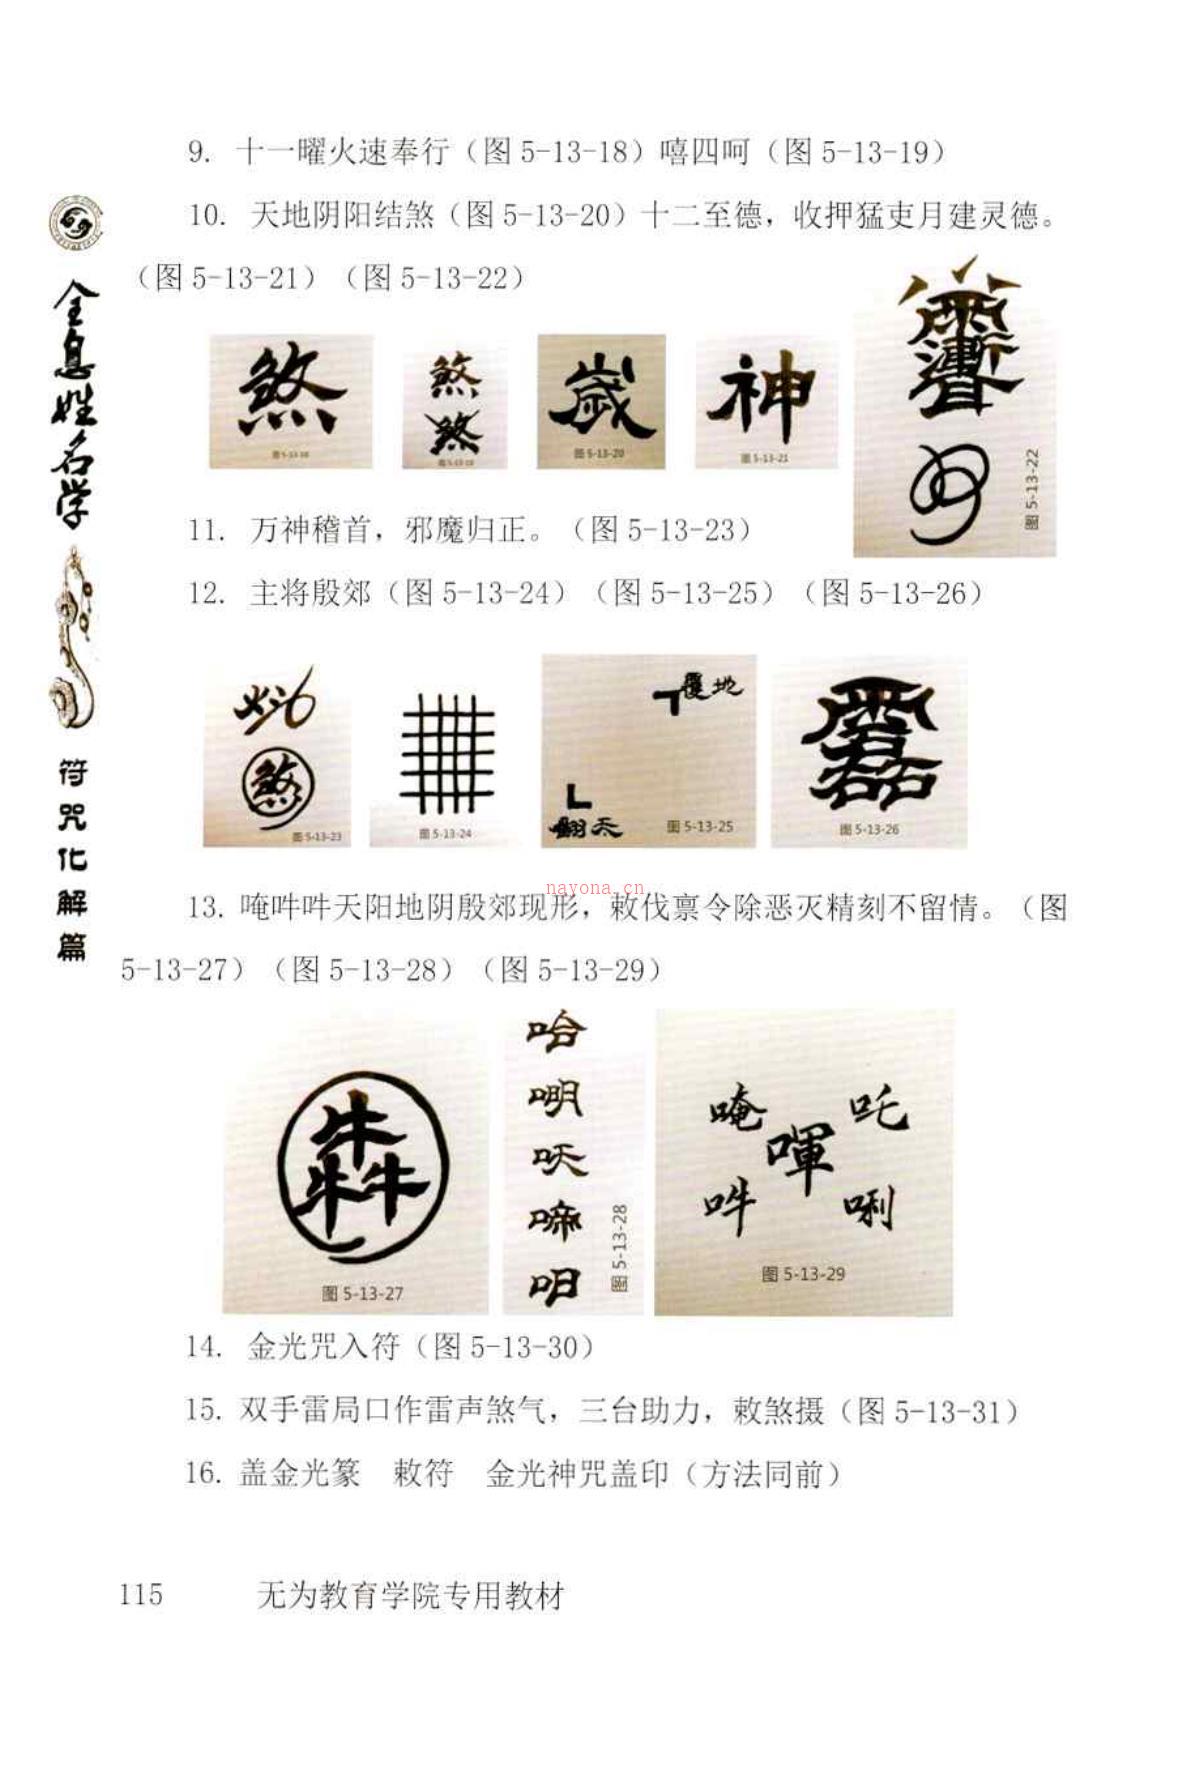 9. 十一曜火速奉行（图 5-13-18）嘻四呵（图 5-13-19）
10. 天地阴阳结煞（图 5-13-20）十二至德，收押猛吏月建灵德。
（图 5-13-21）（图 5-13-22）
煞
图5-13-18
煞
煞
图5-13-19
歲
图5-13-20
神
图5-13-21
图5-13-22
11. 万神稽首，邪魔归正。（图 5-13-23）
12. 主将殷郊（图 5-13-24）（图 5-13-25）（图 5-13-26）
煞
图5-13-23
图5-13-24
覆地
翻天
图5-13-25
图5-13-26
nayona.cn
13. 唵吽吽天阳地阴殷郊现形，敕伐禀令除恶灭精刻不留情。（图
5-13-27）（图 5-13-28）（图 5-13-29）
犇
图5-13-27
哈
㖼
啼
图5-13-28
唵
吒
嗶
吽
唎
图5-13-29
14. 金光咒入符（图 5-13-30）
15. 双手雷局口作雷声煞气，三台助力，敕煞摄（图 5-13-31）
16. 盖金光篆 敕符 金光神咒盖印（方法同前）
115 无为教育学院专用教材
全息姓名学
符咒化解篇